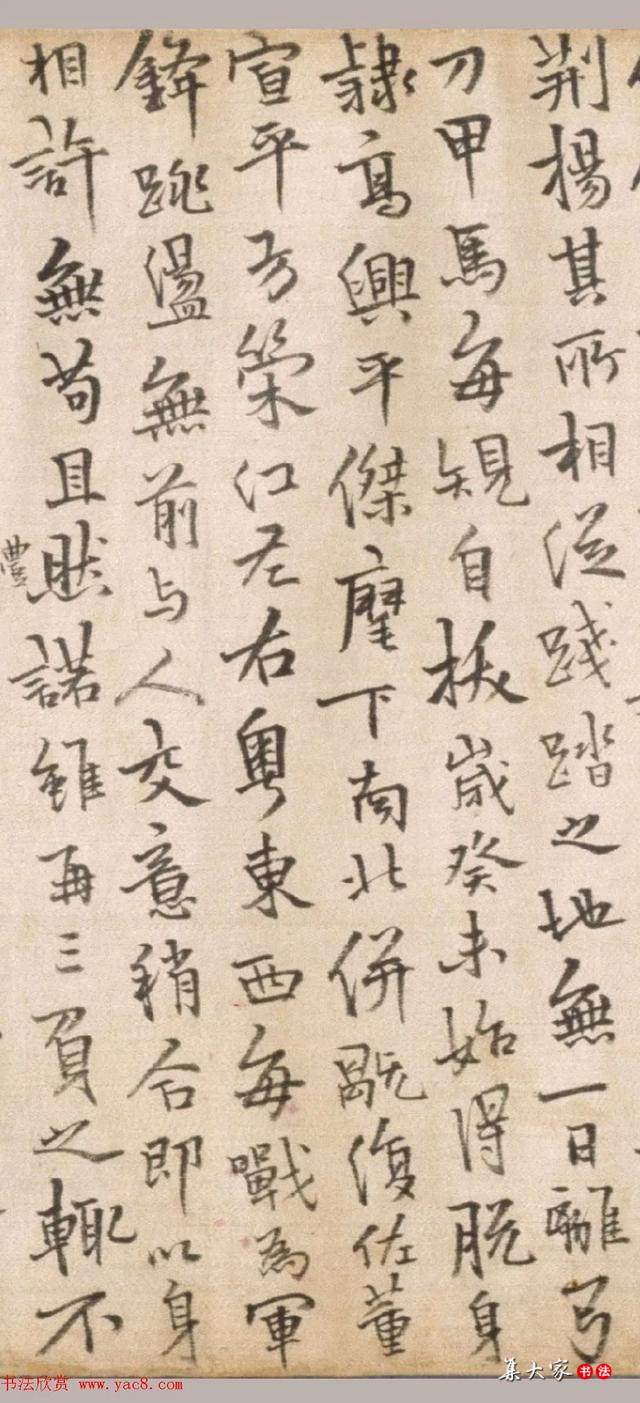 荆楊其所相從踐踏之地無一日離弓
刀甲馬每規自拔歲癸未始得脱身
隷高興平傑麾下南北併甌復佐董
宣平方策江左右粤東西每戰為軍
鋒跳盪無前与人交意稍合即以身
相許無苟且然諾雖再三負之輒不
豐
集大家书法
书法欣赏 www.yac8.com